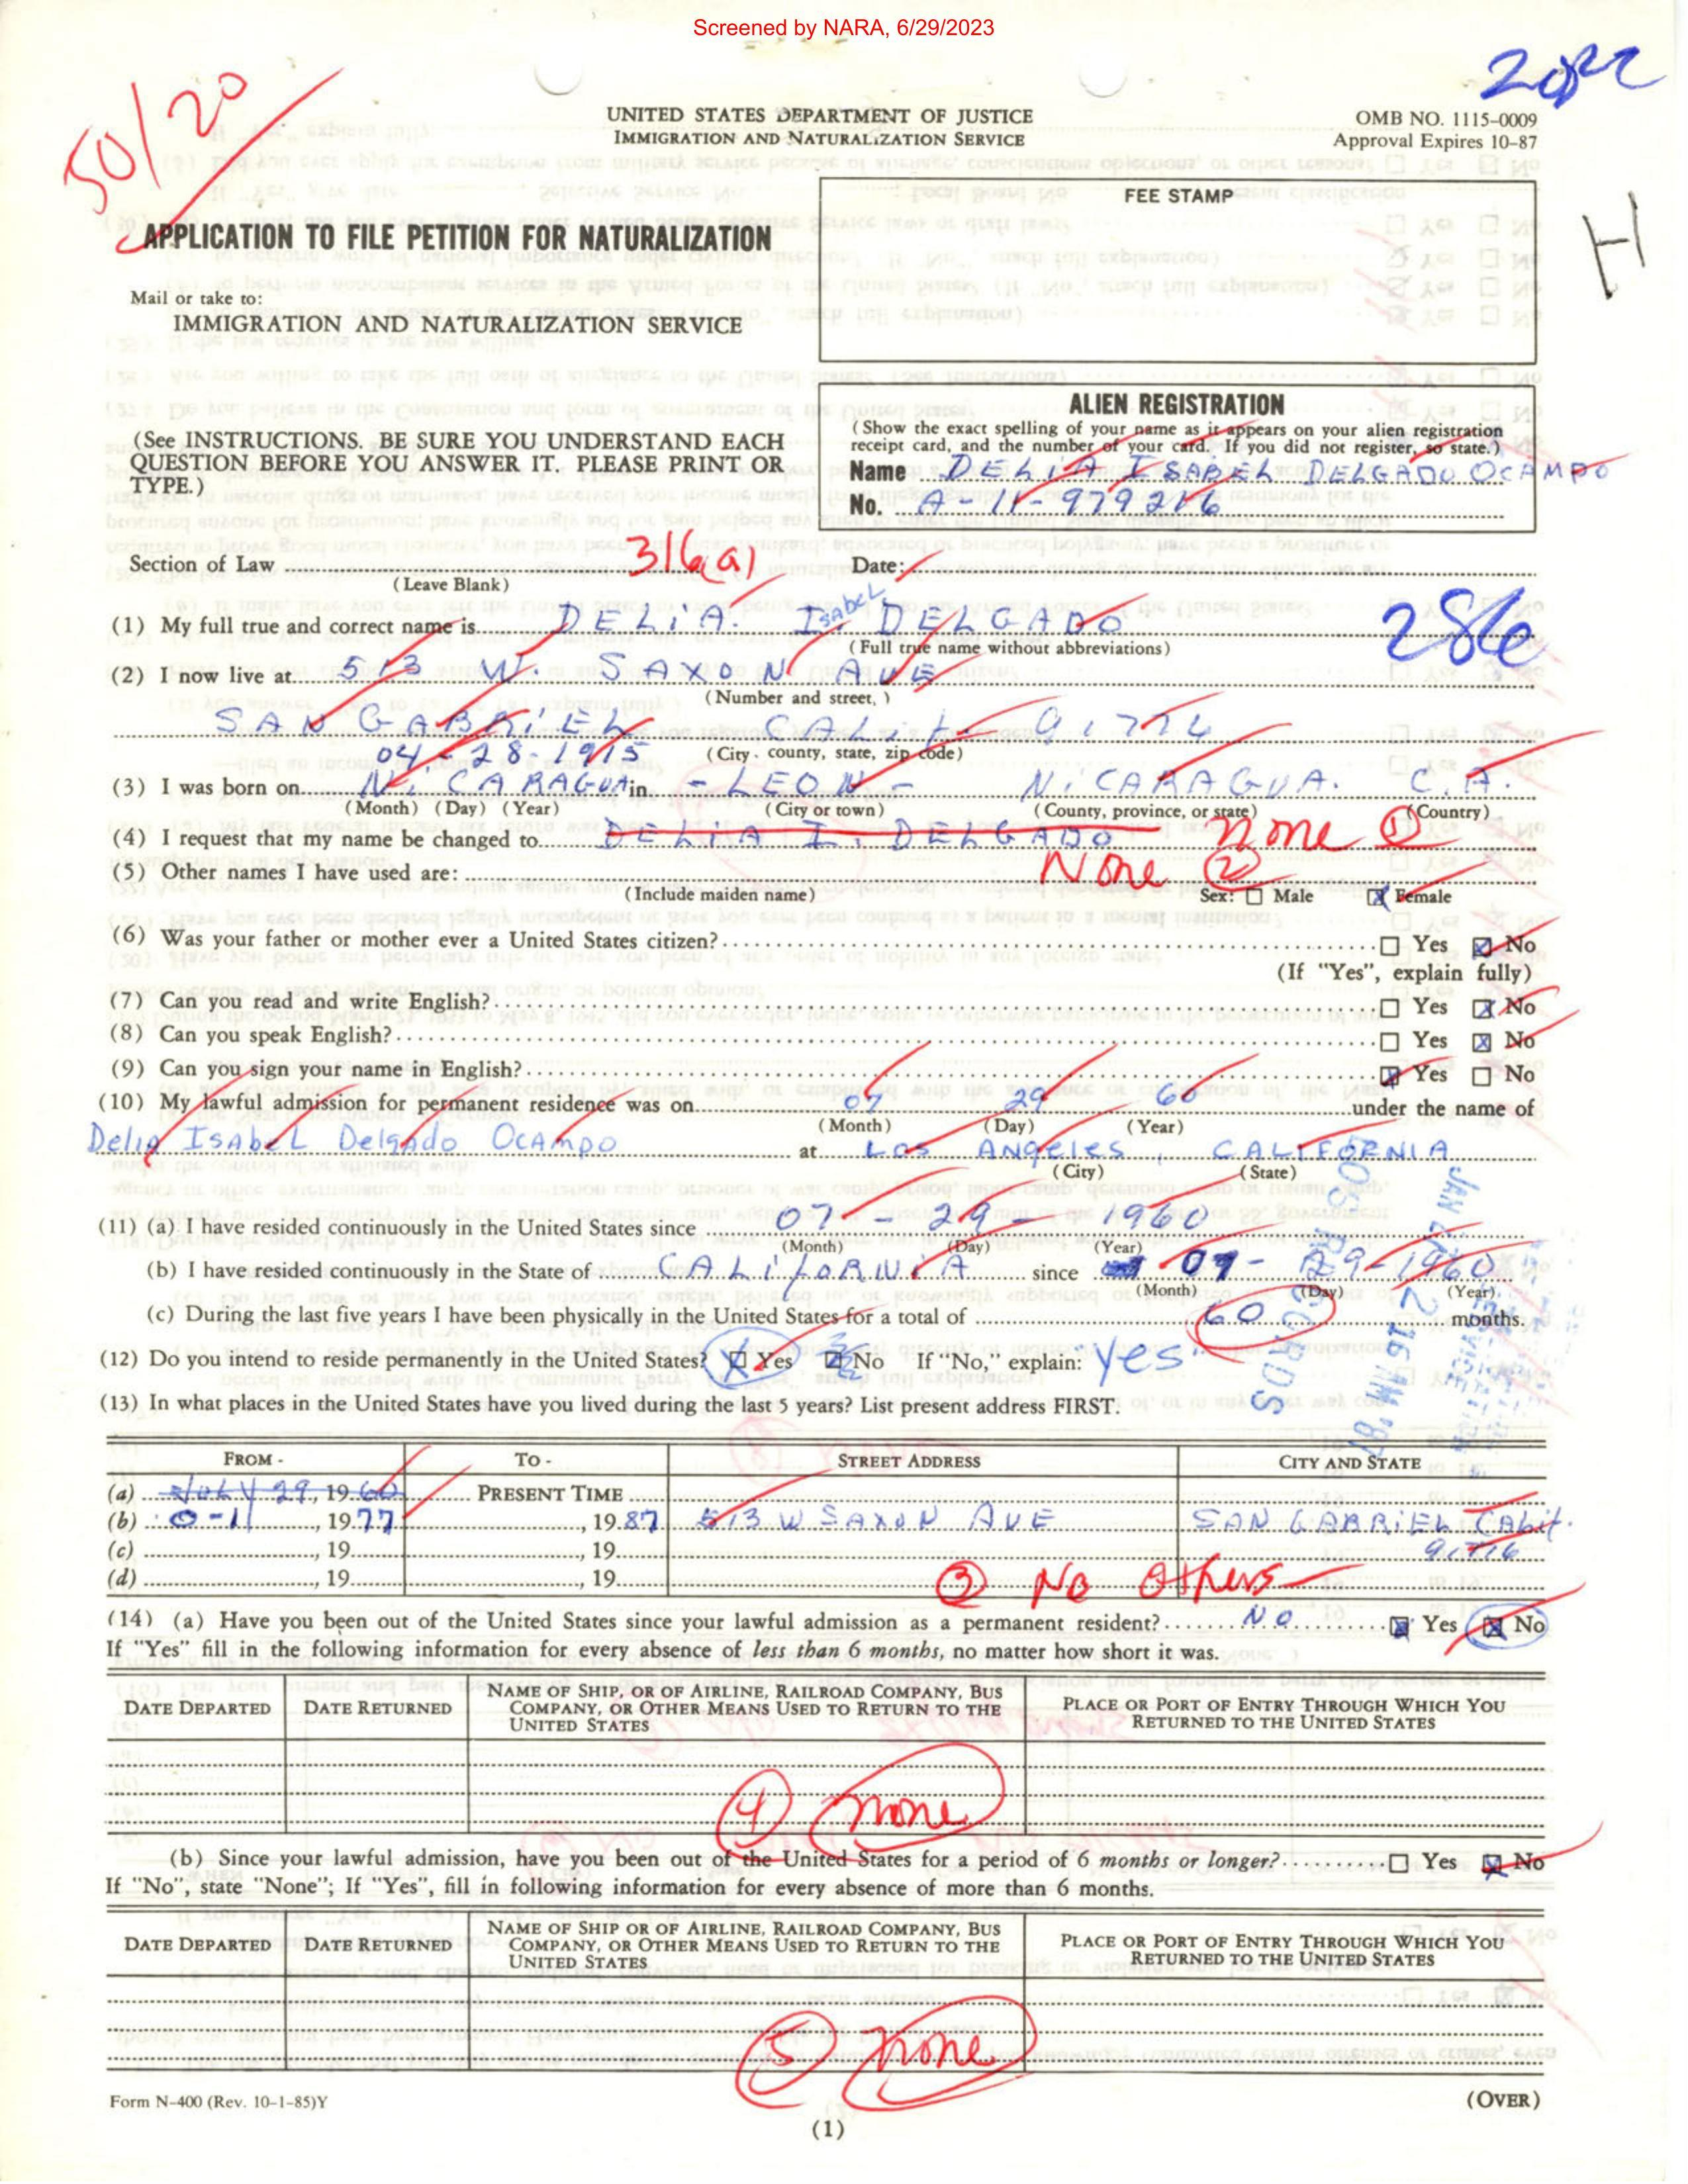 Screened by NARA, 6/29/2023
50/20
UNITED STATES DEPARTMENT OF JUSTICE
IMMIGRATION AND NATURALIZATION SERVICE
OMB NO. 1115-0009
Approval Expires 10-87
FEE STAMP
H
APPLICATION TO FILE PETITION FOR NATURALIZATION
Mail or take to:
IMMIGRATION AND NATURALIZATION SERVICE
(See INSTRUCTIONS. BE SURE YOU UNDERSTAND EACH
QUESTION BEFORE YOU ANSWER IT. PLEASE PRINT OR
TYPE.)
ALIEN REGISTRATION
(Show the exact spelling of your name as it appears on your alien registration
receipt card, and the number of your card. If you did not register, so state.)
Name DELIA ISABEL DELGADO OCAMPO
No. A-11-979216
Section of Law 316(a) Date:
(Leave Blank)
(1) My full true and correct name is DELiA. I. Isabel DELGADO
286
(Full true name without abbreviations)
(2) I now live at 513 W. SAXON AVE
(Number and street, )
SAN GABRiEL CALif- 91776
(City, county, state, zip code)
04-28-1915
(3) I was born on Ni CARAGUA in - LEON - NiCARAGUA. C.A.
(Month) (Day) (Year) (City or town) (County, province, or state) (Country)
(4) I request that my name be changed to DELiA I. DELGADO none 1
(5) Other names I have used are: None 2
(Include maiden name) Sex: Male Female
(6) Was your father or mother ever a United States citizen? Yes No
(If "Yes", explain fully)
(7) Can you read and write English? Yes No
(8) Can you speak English? Yes No
(9) Can you sign your name in English? Yes No
(10) My lawful admission for permanent residence was on 07 29 60 under the name of
(Month) (Day) (Year)
Delia ISAbEL Delgado OCAmpo at LOS ANgeles, CALIFORNIA
(City) (State)
(11) (a) I have resided continuously in the United States since 07 - 29 - 1960
(Month) (Day) (Year)
(b) I have resided continuously in the State of CALifORNiA since 07- 29-1960
(Month) (Day) (Year)
(c) During the last five years I have been physically in the United States for a total of 60 months.
(12) Do you intend to reside permanently in the United States? Yes No If "No," explain: yes
(13) In what places in the United States have you lived during the last 5 years? List present address FIRST.
FROM - TO - STREET ADDRESS CITY AND STATE
(a) JULY 29, 1960 PRESENT TIME
(b) 0-11, 1977 , 1987 513 W SAXON AVE SAN GABRIEL CALif.
91776
(c) , 19 , 19
(d) , 19 , 19
3 No Others
(14) (a) Have you been out of the United States since your lawful admission as a permanent resident? NO Yes No
If "Yes" fill in the following information for every absence of less than 6 months, no matter how short it was.
DATE DEPARTED DATE RETURNED NAME OF SHIP, OR OF AIRLINE, RAILROAD COMPANY, BUS COMPANY, OR OTHER MEANS USED TO RETURN TO THE UNITED STATES PLACE OR PORT OF ENTRY THROUGH WHICH YOU RETURNED TO THE UNITED STATES
4 none
(b) Since your lawful admission, have you been out of the United States for a period of 6 months or longer? Yes No
If "No", state "None"; If "Yes", fill in following information for every absence of more than 6 months.
DATE DEPARTED DATE RETURNED NAME OF SHIP OR OF AIRLINE, RAILROAD COMPANY, BUS COMPANY, OR OTHER MEANS USED TO RETURN TO THE UNITED STATES PLACE OR PORT OF ENTRY THROUGH WHICH YOU RETURNED TO THE UNITED STATES
5 none
Form N-400 (Rev. 10-1-85)Y
(OVER)
(1)